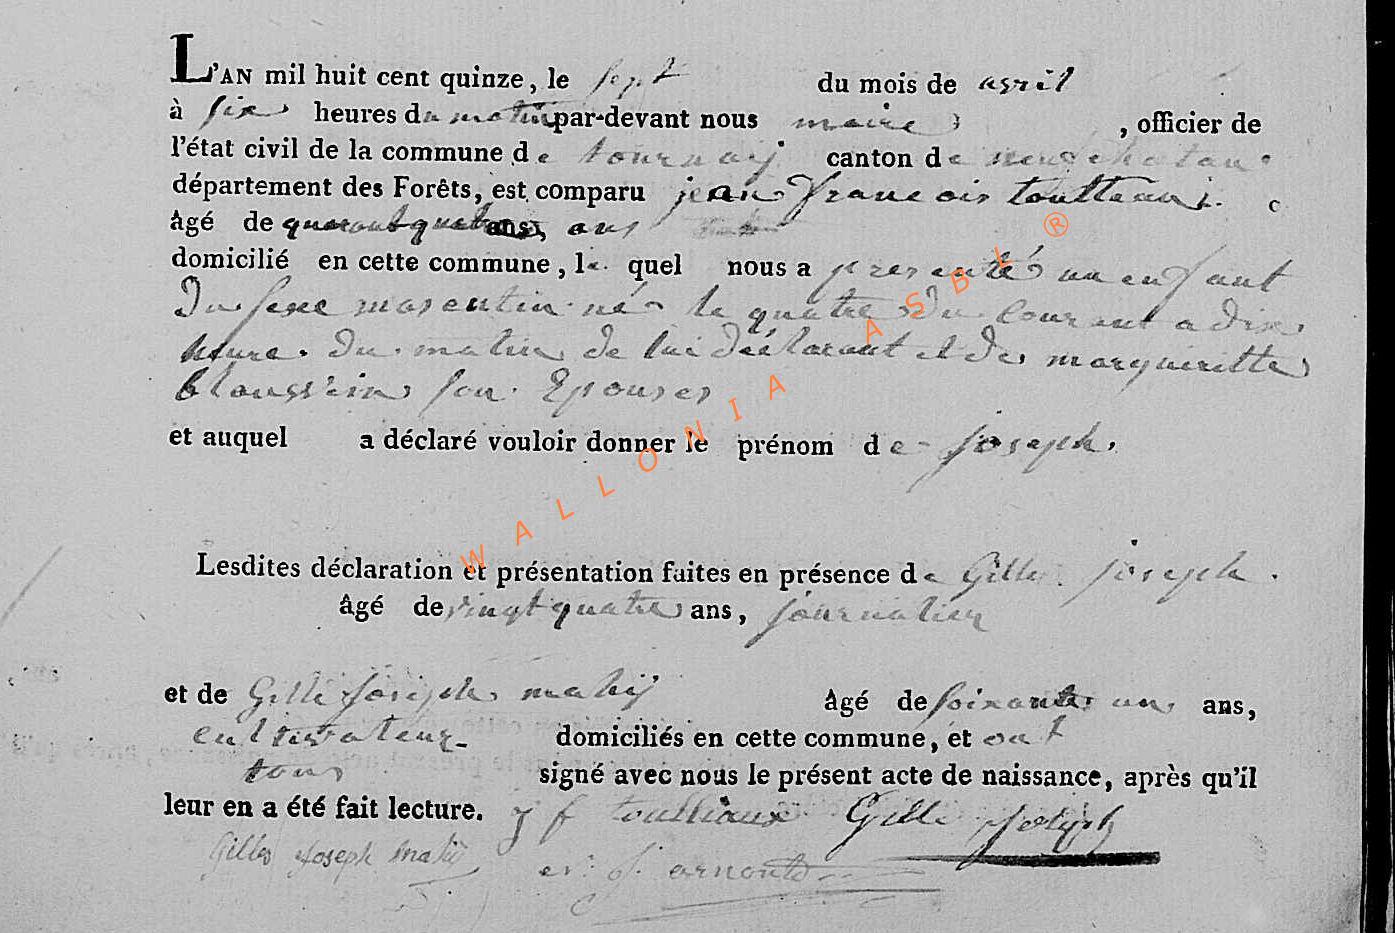 L'AN mil huit cent quinze, le sept du mois de avril
à six heures du matin par-devant nous maire , officier de
l'état civil de la commune de tournay canton de neufchatau
département des Forêts, est comparu jean francois toulleaux
âgé de quarant quatre ans, ans
domicilié en cette commune, le quel nous a presenté un enfant
Du sexe mascutin né le quatre du Courant a dix
heure du matin de lui déclarant et de marguiritte
son Epouses
et auquel a déclaré vouloir donner le prénom de joseph.
WALLONIA ASBL ®
Lesdites déclaration et présentation faites en présence de Gille joseph.
âgé de vingt quatre ans, journalier
et de Gille joseph matij âgé de soixante un ans,
cultivateur domiciliés en cette commune, et ont
tous signé avec nous le présent acte de naissance, après qu'il
leur en a été fait lecture. j f toulliaux Gille joseph
Gilles Joseph mati arnould